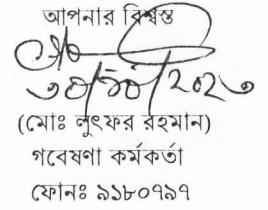 আপনার বিশ্বস্ত
৩০/১০/২০২৩
(মোঃ লুৎফর রহমান)
গবেষণা কর্মকর্তা
ফোনঃ ৯১৮০৭৯৭